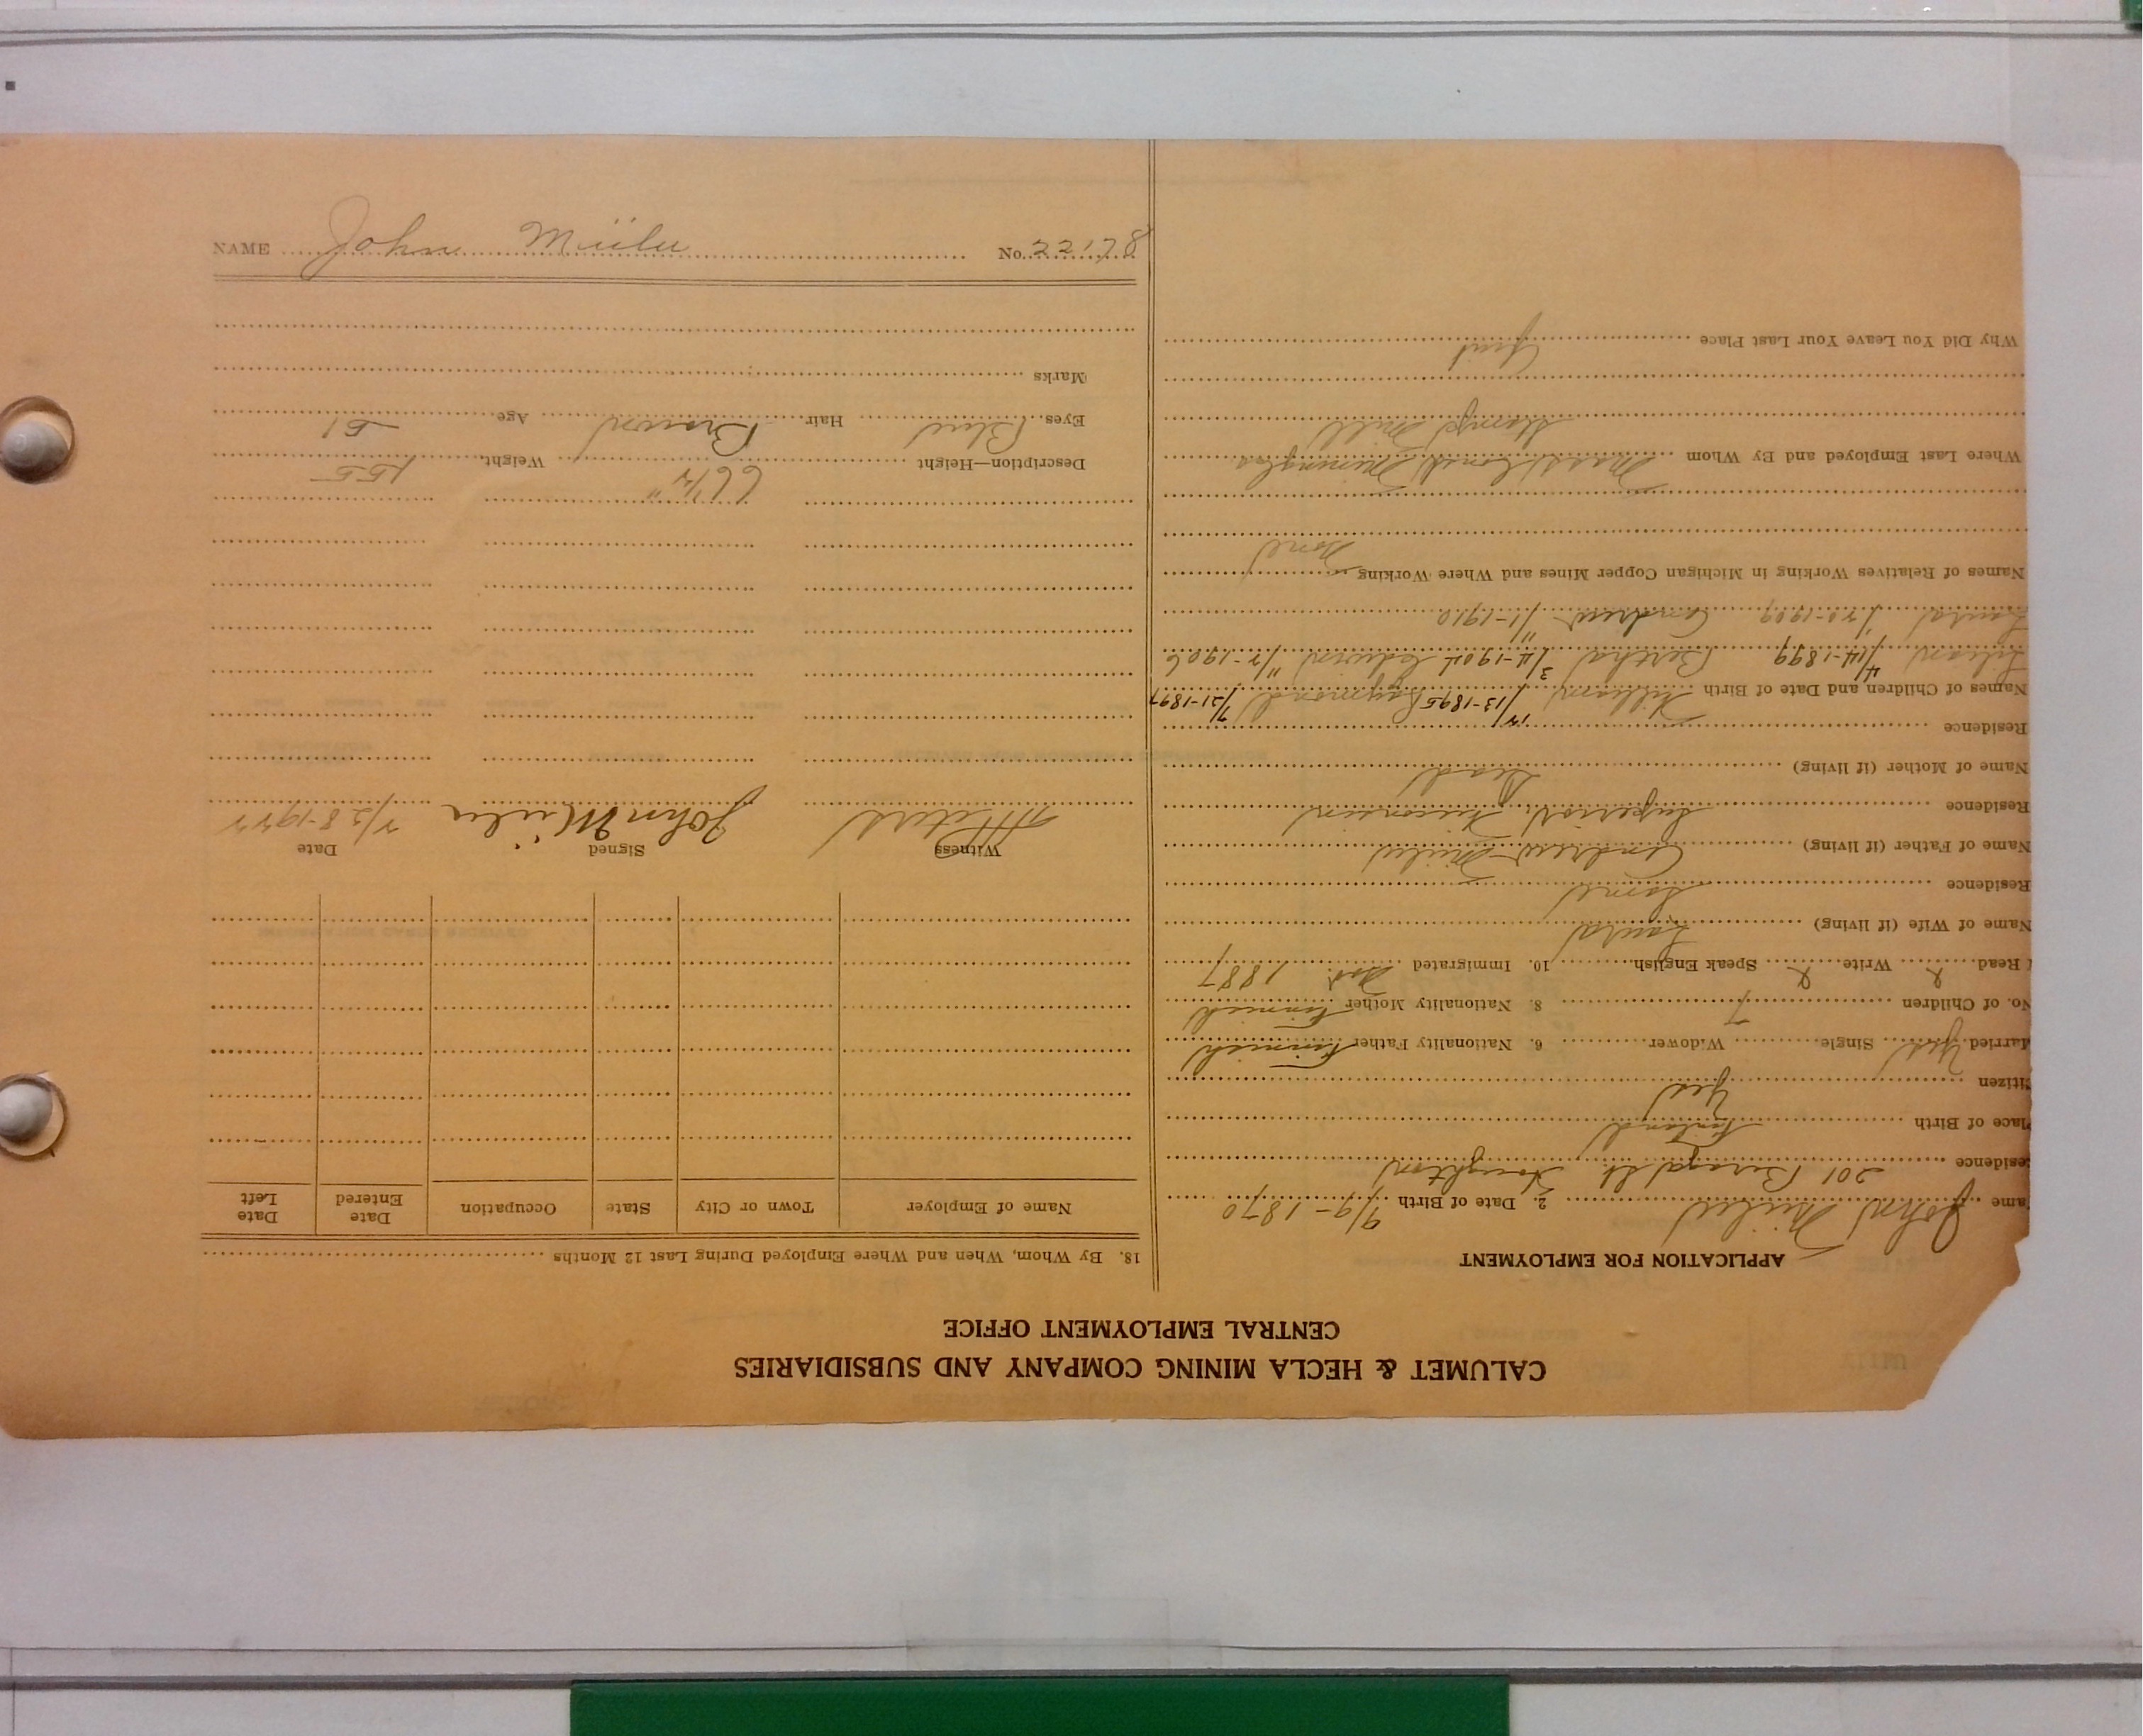 CALUMET & HECLA MINING COMPANY AND SUBSIDIARIES
CENTRAL EMPLOYMENT OFFICE
APPLICATION FOR EMPLOYMENT
ame John Miilu 2. Date of Birth 9/9-1870
esidence 201 Baraga St. Houghton
Place of Birth Finland
itizen Yes
arried Yes Single Widower 6. Nationality Father Finnish
No. of Children 7 8. Nationality Mother Finnish
Read Write Speak English 10. Immigrated 1887
Name of Wife (if living) Laura
Residence Same
Name of Father (if living) Andrew Miilu
Residence Superior, Wisconsin
Name of Mother (if living) Dead
Residence
Names of Children and Date of Birth William 12/13-1895 Raymond 7/21-1897
4/14-1899 Bertha 3/4-1904 Edward 11/2-1906
Andrew 11/1-1910
Names of Relatives Working in Michigan Copper Mines and Where Working None
Where Last Employed and By Whom Mass Cons. Mining Co.
Stamp Mill
Why Did You Leave Your Last Place Quit
18. By Whom, When and Where Employed During Last 12 Months
Name of Employer Town or City State Occupation Date Entered Date Left
Witness Signed Date
John Miilu 2/28-1922
Description—Height 66 1/2" Weight 155
Eyes Blue Hair Brown Age 51
Marks
NAME John Miilu No. 22178